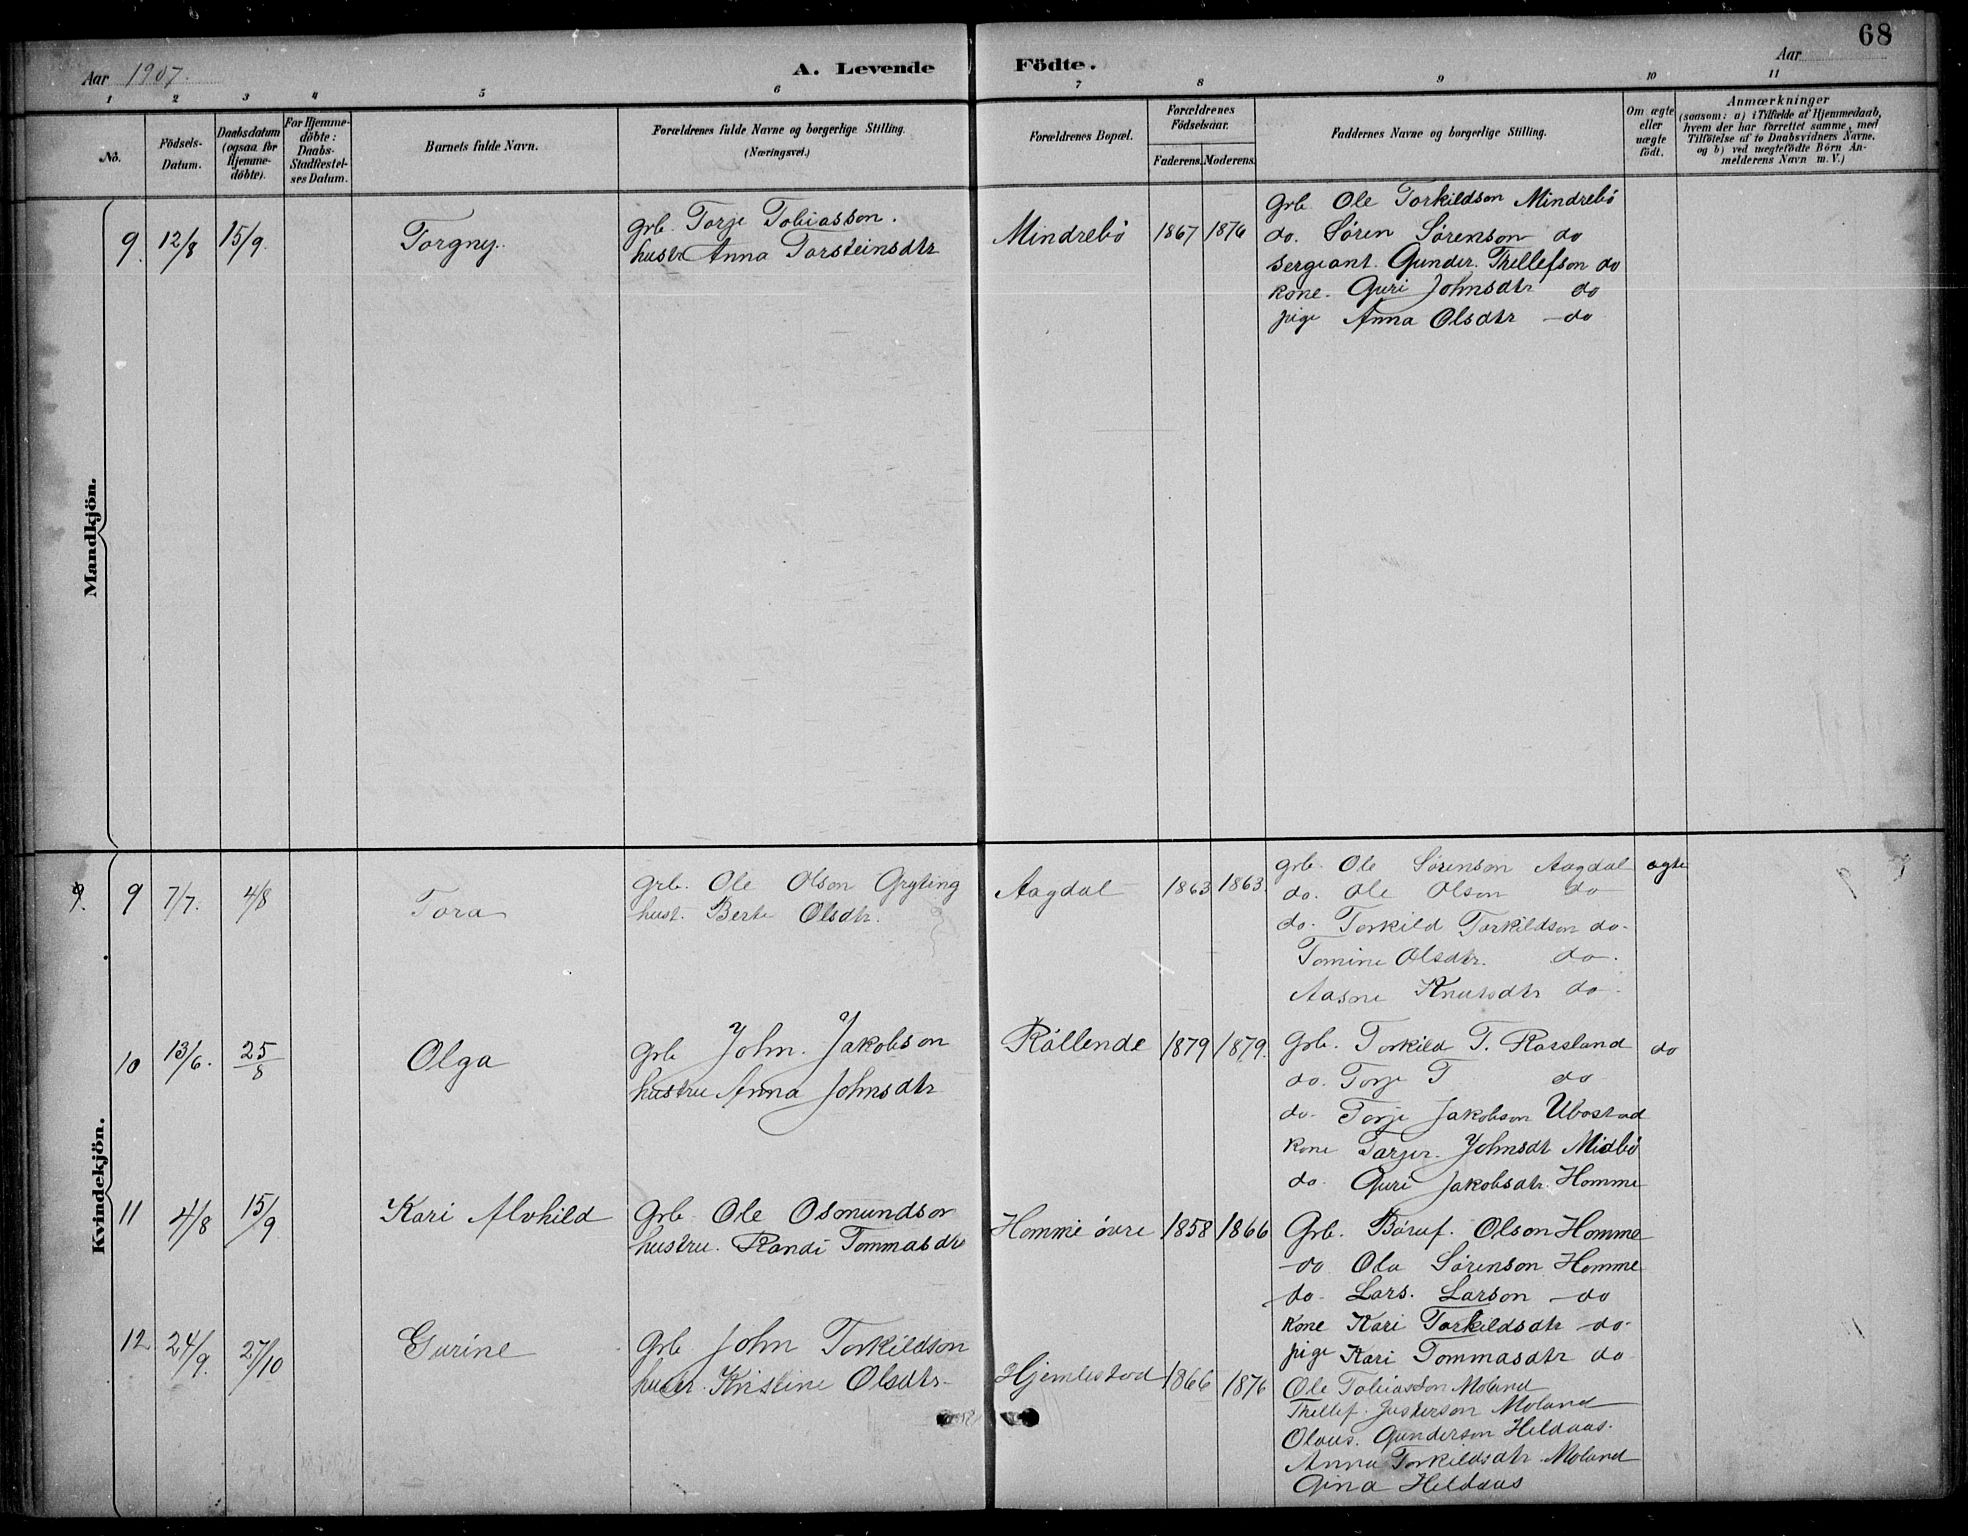 68
Aar 1907.
A. Levende Födte.
Aar
1 2 3 4 5 6 7 8 9 10 11
No.
Födsels-
Datum.
Daabsdatum
(ogsaa for
Hjemme-
döbte).
For Hjemme-
döbte:
Daabs-
Stadfæstel-
ses Datum.
Barnets fulde Navn.
Forældrenes fulde Navne og borgerlige Stilling.
(Næringsvei.)
Forældrenes Bopæl.
Forældrenes
Födselsaar.
Faderens. Moderens.
Faddernes Navne og borgerlige Stilling.
Om ægte
eller
uægte
født.
Anmærkninger
(saasom: a) i Tilfælde af Hjemmedaab,
hvem der har forrettet samme, med
Tilföielse af to Daabsvidners Navne.
og b) ved uægtefödte Börn An-
melderens Navn m. V.)
Mandkjön.
9. 12/8 15/9. Torgny.
grb. Torje Tobiasson.
hustr Anna Torsteinsdtr
Mindrebö 1867 1876
Grb. Ole Torkildson Mindrebö
do. Sören Sörenson do
Sergeant. Gunder. Thellefson do
Kone. Guri Johnsdtr do
pige Anna Olsdtr do
Kvindekjön.
9. 9 7/7. 4/8 Tora
Grb. Ole Olson Gryting
hust. Berte Olsdtr.
Aagdal 1863 1863.
grb. Ole Sörenson Aagdal ægte
do. Ole Olson do
do. Torkild Torkildson do.
Tomine Olsdtr. do.
Aasne Knutsdtr do.
10 13/6. 25/8 Olga
Grb John. Jakobson
hustru Anna Johnsdtr
Röllende 1879 1879.
Grb. Torkild T. Rosseland do
do. Torje T do
do. Torje Jakobson Ubostad
Kone Torjer. Johnsdt Midbö
do. Guri Jakobsdtr. Homme
11 4/8 15/9 Kari Alvhild
Grb Ole Osmundson
hustru. Randi Tommasdtr
Homme övre 1858 1866
Grb. Böruf. Olson Homme
do Ola Sörenson Homme
do. Lars. Larson do
Kone Kari Torkildsdtr do.
pige Kari Tommasdtr do
12 24/9. 27/10 Gurine
Grb John Torkildson
hustr. Kristine Olsdtr.
Hjemlestad 1866 1876
Ole Tobiasson Moland
Thellef. Justerson Moland
Olaus. Gunderson Heldaas.
Anna Torkildsdtr. Moland
Gina Heldaas